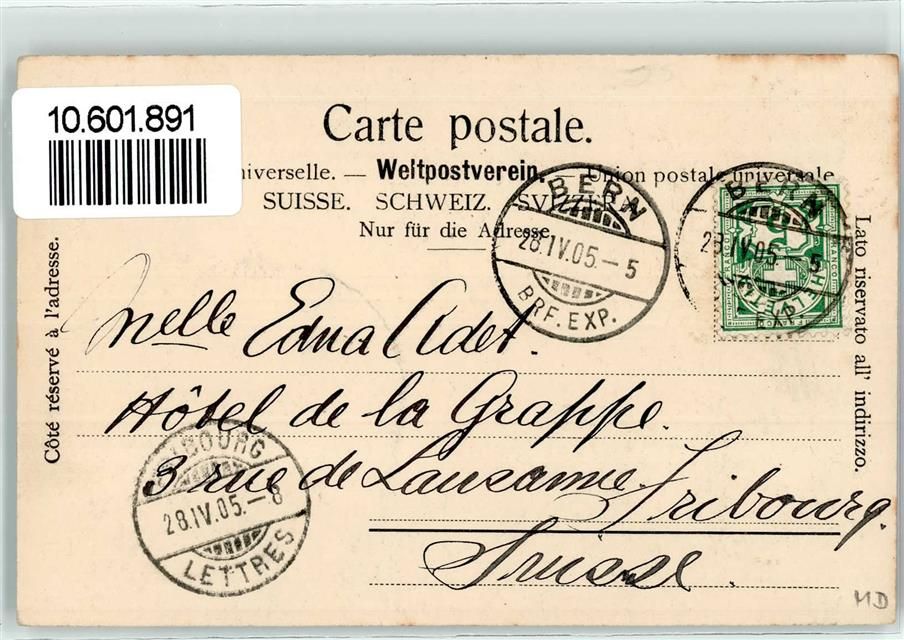 10.601.891
Carte postale.
iverselle. — Weltpostverein. — Union postale universale
SUISSE. SCHWEIZ. SVIZZERA
Nur für die Adresse.
Côté réservé à l'adresse.
Lato riservato all' indirizzo.
BERN
28.IV.05.–5
BRF.EXP.
BERN
28.IV.05.–5
HELVETIA
FRANCO
Melle Edna Adet.
Hôtel de la Grappe.
3 rue de Lausanne. Fribourg.
Suisse.
IBOURG
28.IV.05.–8
LETTRES
MD